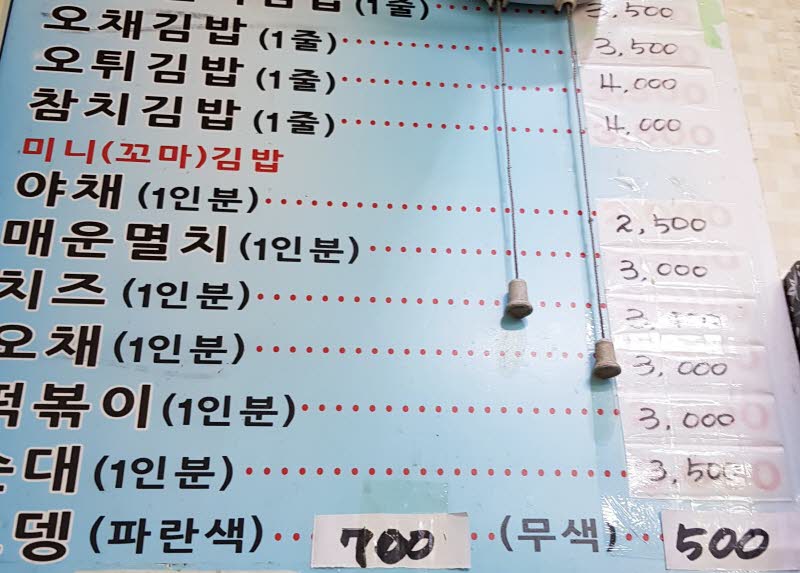 김밥 (1줄) 3,500
오채김밥 (1줄) 3,500
오튀김밥 (1줄) 4,000
참치김밥 (1줄) 4,000
미니(꼬마)김밥
야채 (1인분) 2,500
매운멸치 (1인분) 3,000
치즈 (1인분)
오채 (1인분) 3,000
떡볶이 (1인분) 3,000
순대 (1인분) 3,500
뎅 (파란색) 700 (무색) 500